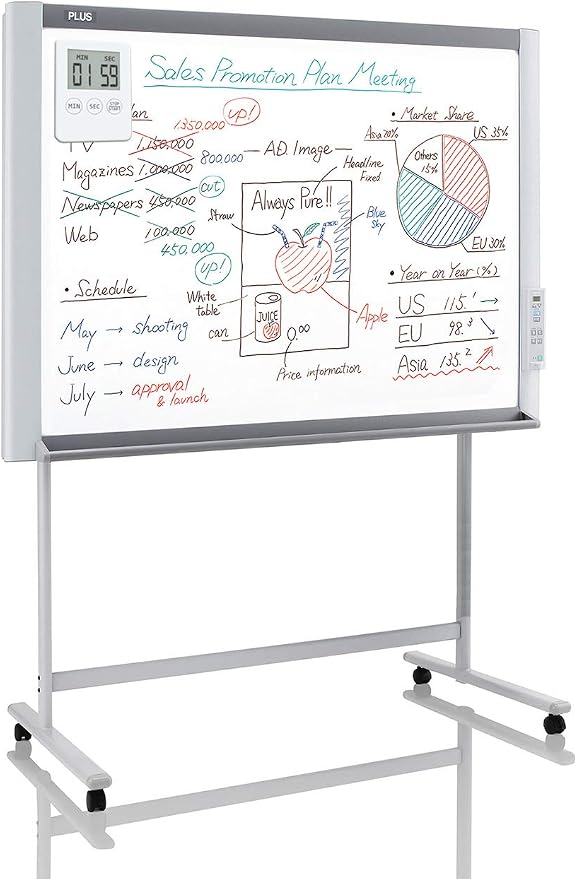 PLUS
MIN SEC
01 59
MIN SEC STOP START
Sales Promotion Plan Meeting
lan
1350,000 up!
TV 1,150,000
800,000
Magazines 1,000,000
cut
Newspapers 450,000
Web 100,000
450,000
up!
• Schedule
May → shooting
June → design
July → approval
& launch
—AD. Image—
Headline
Fixed
Always Pure!!
Straw
Blue
Sky
White
table
can
JUICE
Apple
0.00
Price information
• Market Share
Asia 20%
US 35%
Others
15%
EU 30%
• Year on Year (%)
US 115.1 →
EU 98.3 ↘
Asia 135.2 ↗